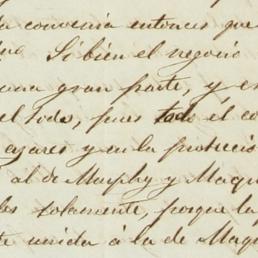 la convenia entonces que
Si bien el negocio
una gran parte, y es
el todo, pues todo el co
azares y en la protecció
al de Murphy y Maqu
solamente, porque la
unida á la de Maqu